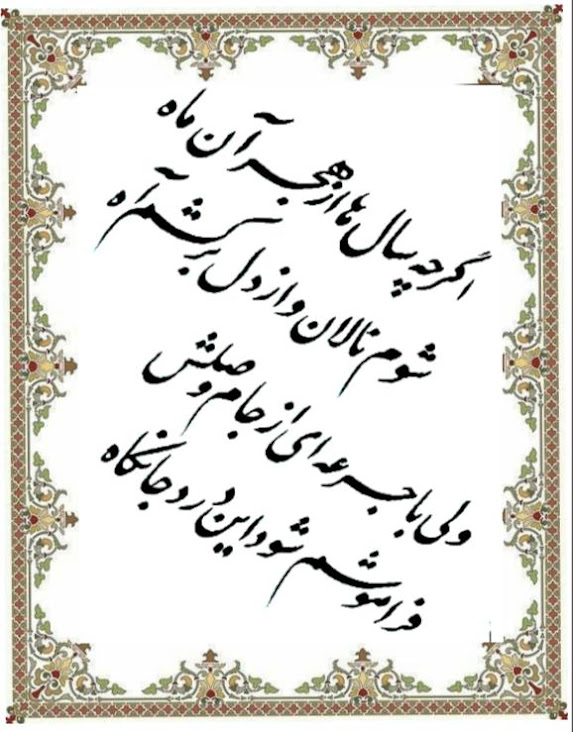 اگرچه سال ها از هجر آن ماه
شوم نالان و از دل برکشم آه
ولی با جرعه ای از جام وصلش
فراموشم شود این درد جانکاه